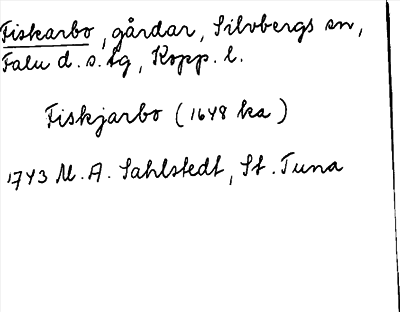 Fiskarbo, gårdar, Silvbergs sn,
Falu d. s. tg, Kopp. l.
Fiskjarbo (1648 ka)
1743 M. A. Sahlstedt, St. Tuna